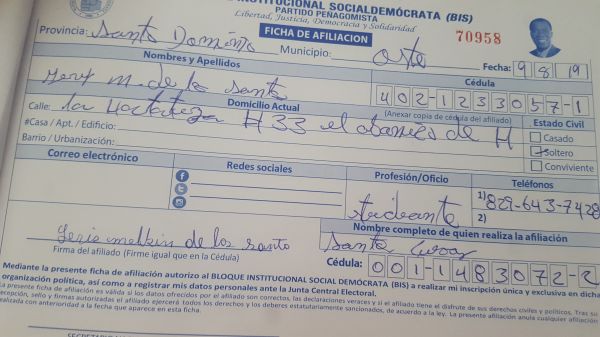 INSTITUCIONAL SOCIALDEMÓCRATA (BIS)
PARTIDO PEÑAGOMISTA
Libertad, Justicia, Democracia y Solidaridad
FICHA DE AFILIACION 70958
Provincia: Santo Domingo Municipio: Oste Fecha: 9 8 19
Nombres y Apellidos Cédula
m. de los santo 402-1233057-1
Domicilio Actual (Anexar copia de cédula del afiliado) Estado Civil
Calle: la H 33 el de H Casado
#Casa / Apt. / Edificio: Soltero
Barrio / Urbanización: Conviviente
Correo electrónico Redes sociales Profesión/Oficio Teléfonos
1) 829-643-7428
2)
Nombre completo de quien realiza la afiliación
de los santo Santa
Firma del afiliado (Firme igual que en la Cédula) Cédula: 001-1483072-2
Mediante la presente ficha de afiliación autorizo al BLOQUE INSTITUCIONAL SOCIAL DEMÓCRATA (BIS) a realizar mi inscripción única y exclusiva en dicha
organización política, así como a registrar mis datos personales ante la Junta Central Electoral.
La presente ficha de afiliación es válida si los datos ofrecidos por el afiliado son correctos, las declaraciones veraces y si el afiliado tiene el disfrute de sus derechos civiles y políticos. Tras su
recepción, sello y firmas autorizadas el afiliado ejercerá todos los derechos y los deberes estatutariamente sancionados, de acuerdo a la ley. La presente afiliación anula cualquier afiliación
realizada con anterioridad a la fecha que aparece en esta ficha.